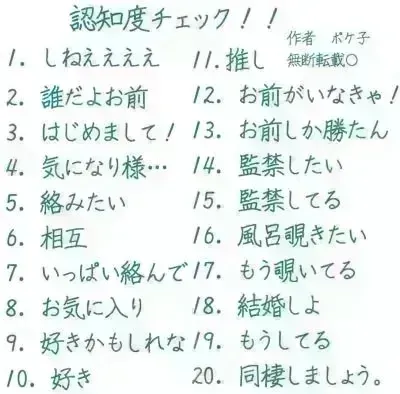 認知度チェック！！
作者 ポケ子
無断転載○
1. しねえええええ
2. 誰だよお前
3. はじめまして！
4. 気になり様…
5. 絡みたい
6. 相互
7. いっぱい絡んで
8. お気に入り
9. 好きかもしれな
10. 好き
11. 推し
12. お前がいなきゃ！
13. お前しか勝たん
14. 監禁したい
15. 監禁してる
16. 風呂覗きたい
17. もう覗いてる
18. 結婚しよ
19. もうしてる
20. 同棲しましょう。